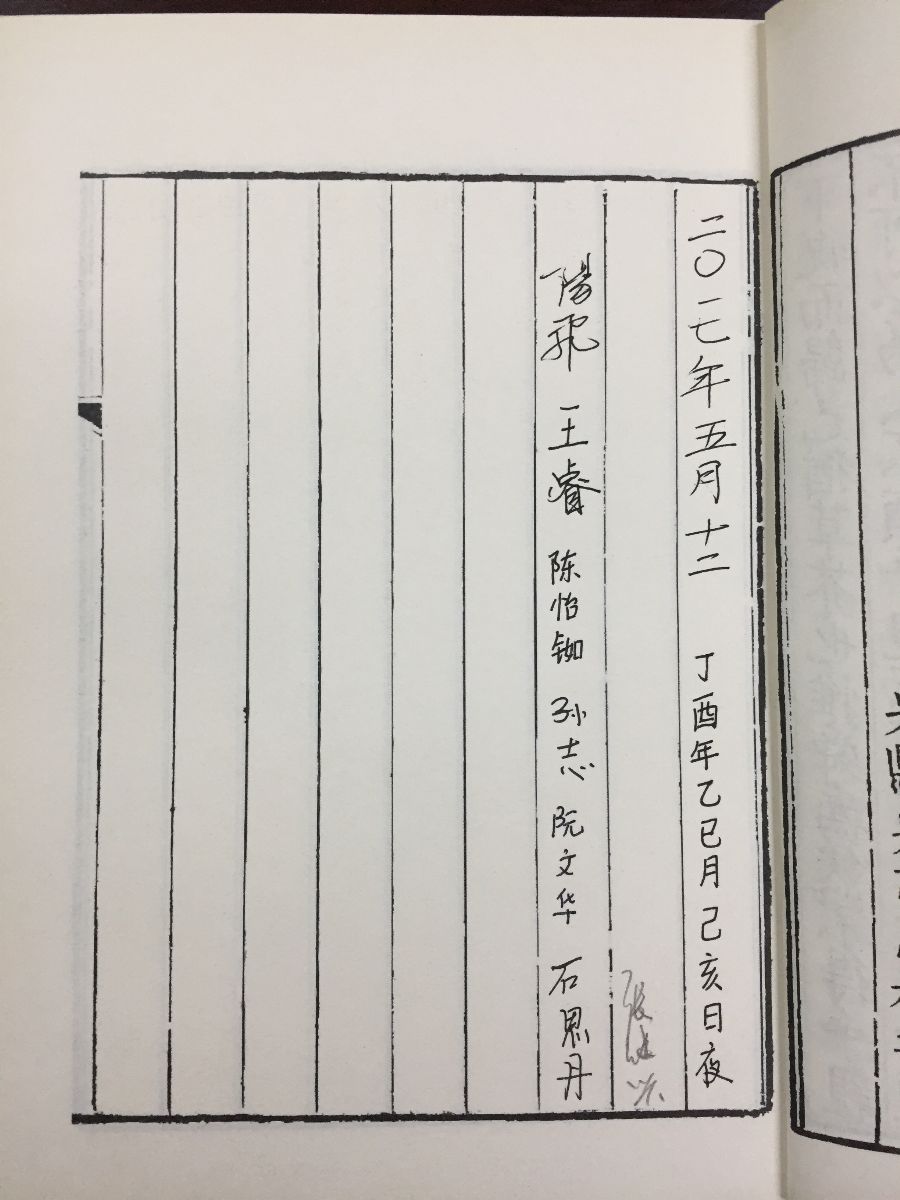 二〇一七年五月十二 丁酉年乙巳月己亥日夜
陽飛 王睿 陈怡铷 孙志 阮文华 石思丹